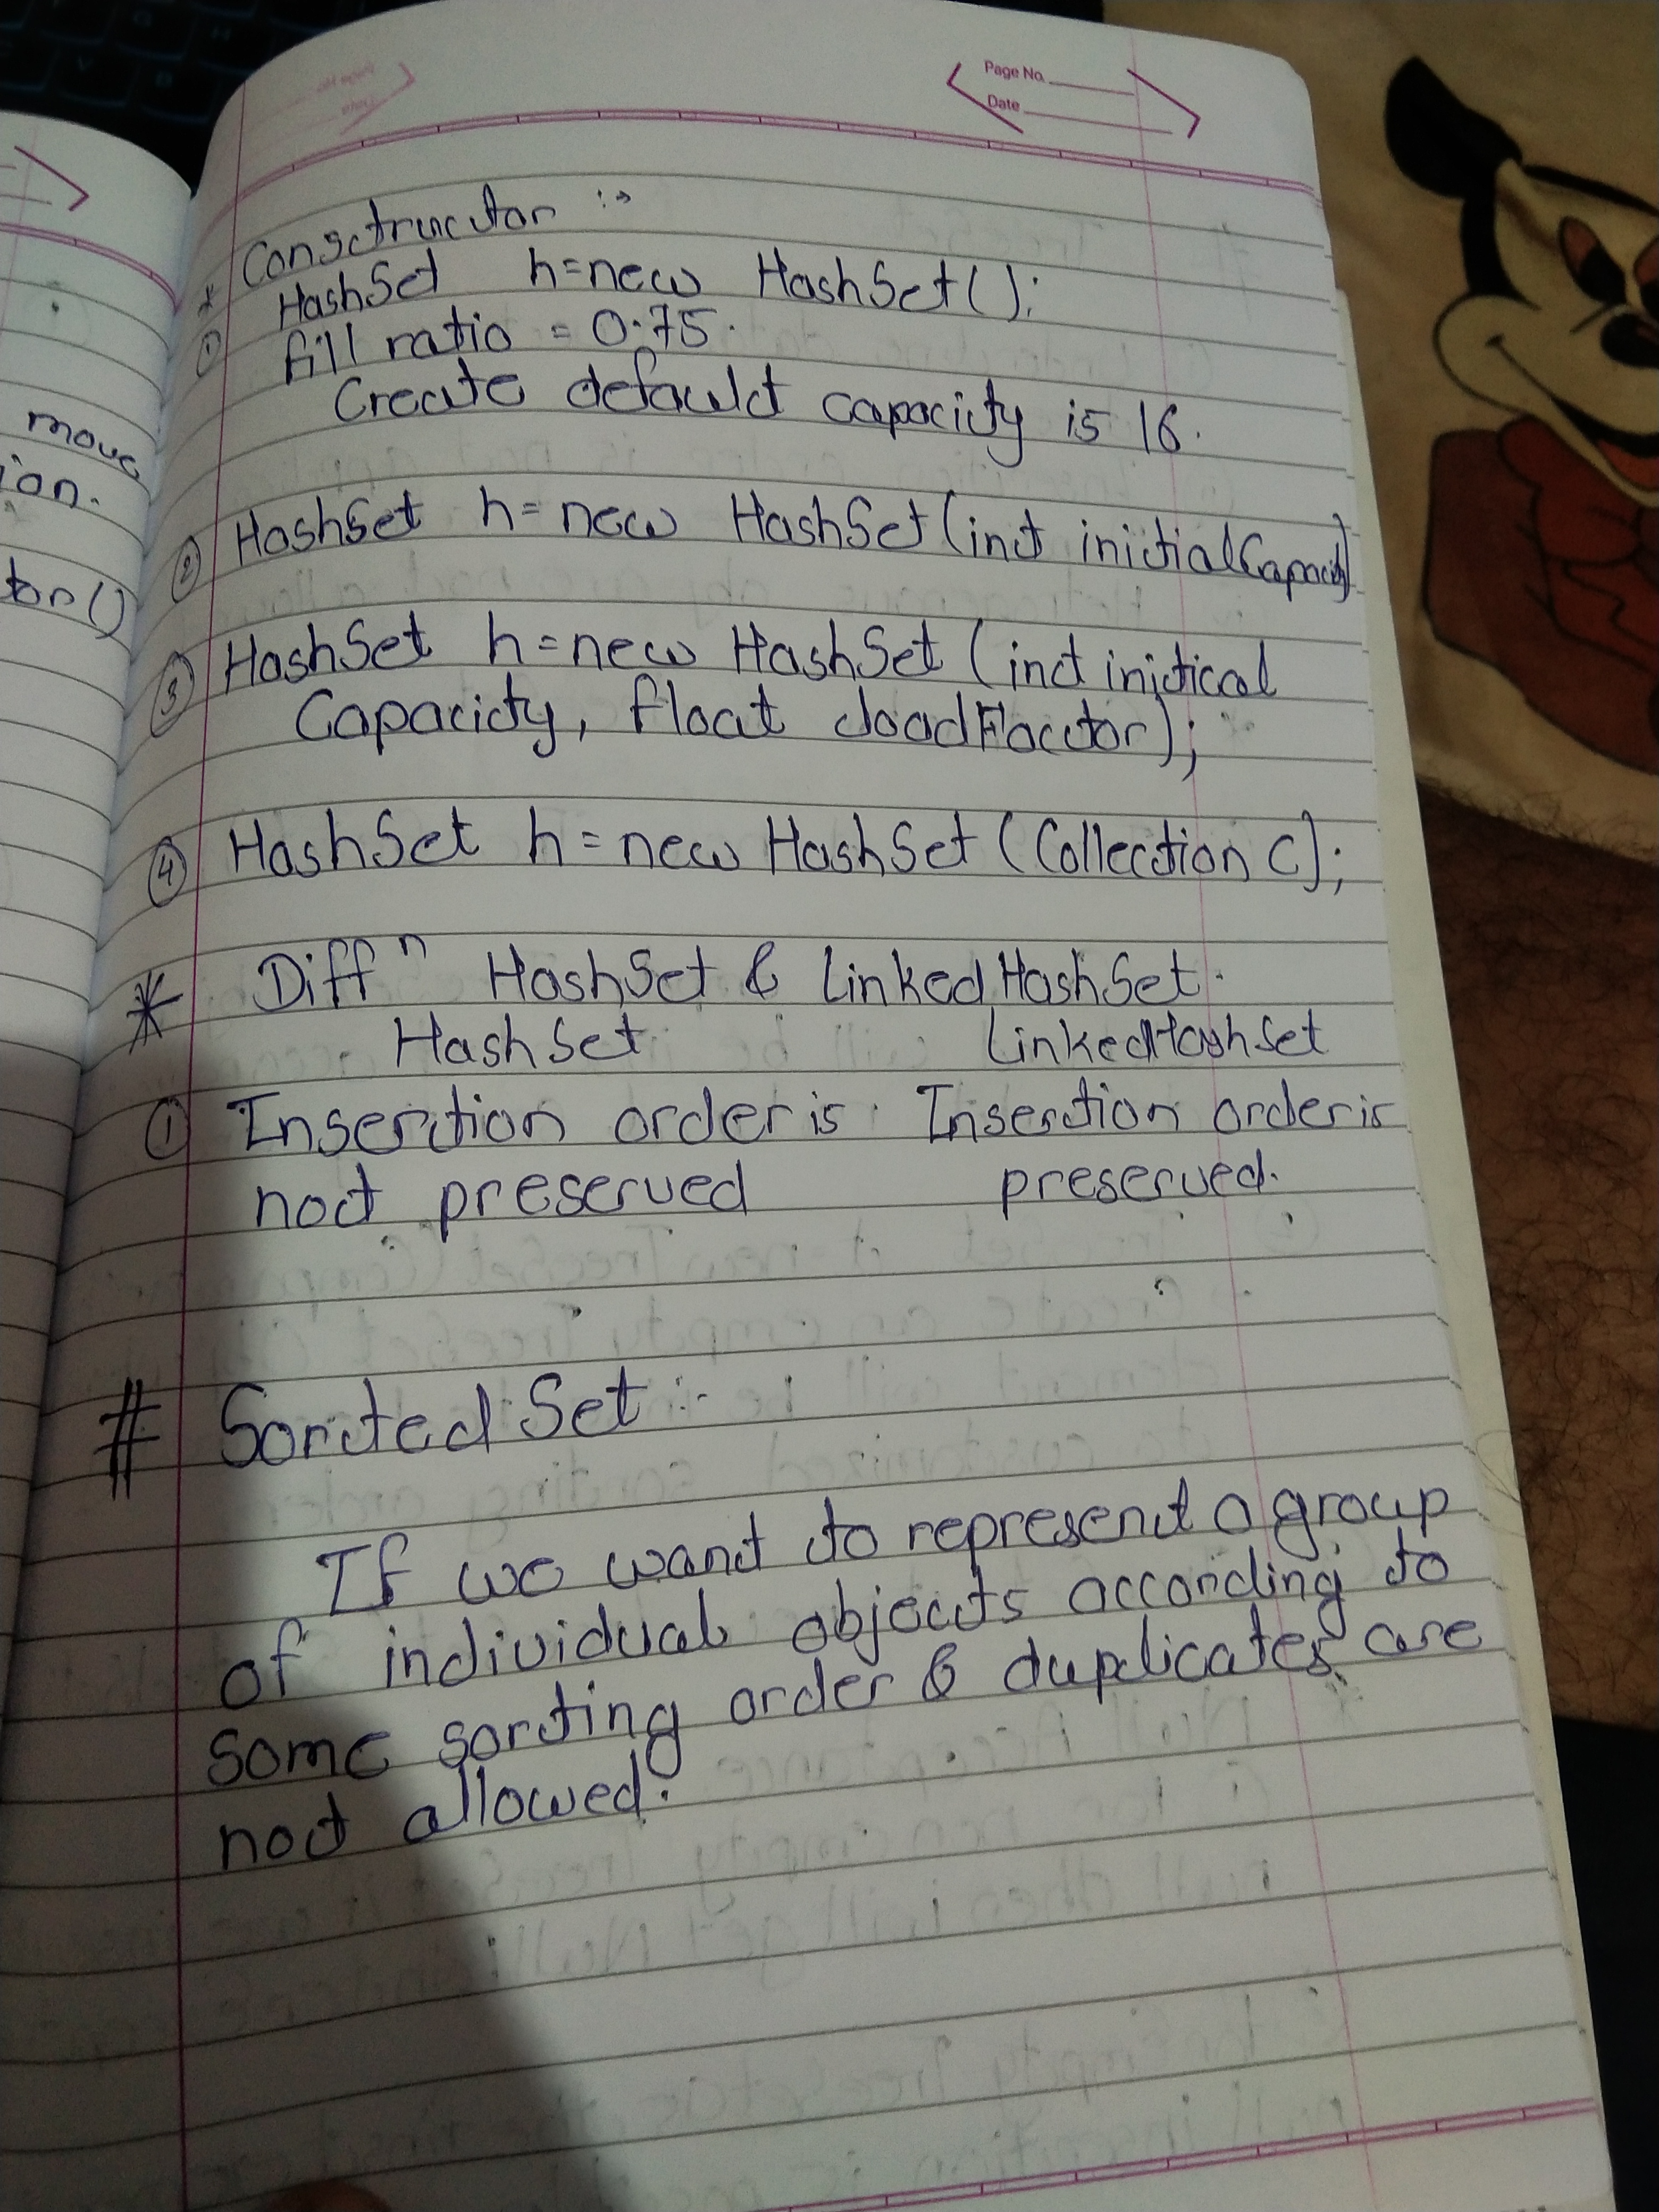 Page No.
Date
* Constructor :-
HashSet h=new HashSet();
① fill ratio = 0.75.
Create default capacity is 16.
② HashSet h= new HashSet(int initialCapacity)
③ HashSet h=new HashSet (int initical
Capacity, float loadFactor);
④ HashSet h=new HashSet (Collection C);
* Diffⁿ HashSet & LinkedHashSet.
HashSet LinkedHashSet
① Insertion order is Insertion order is
not preserved preserved.
# Sorted Set :-
If we want to represent a group
of individual objects according to
some sorting order & duplicates are
not allowed.
move
ion.
tor()